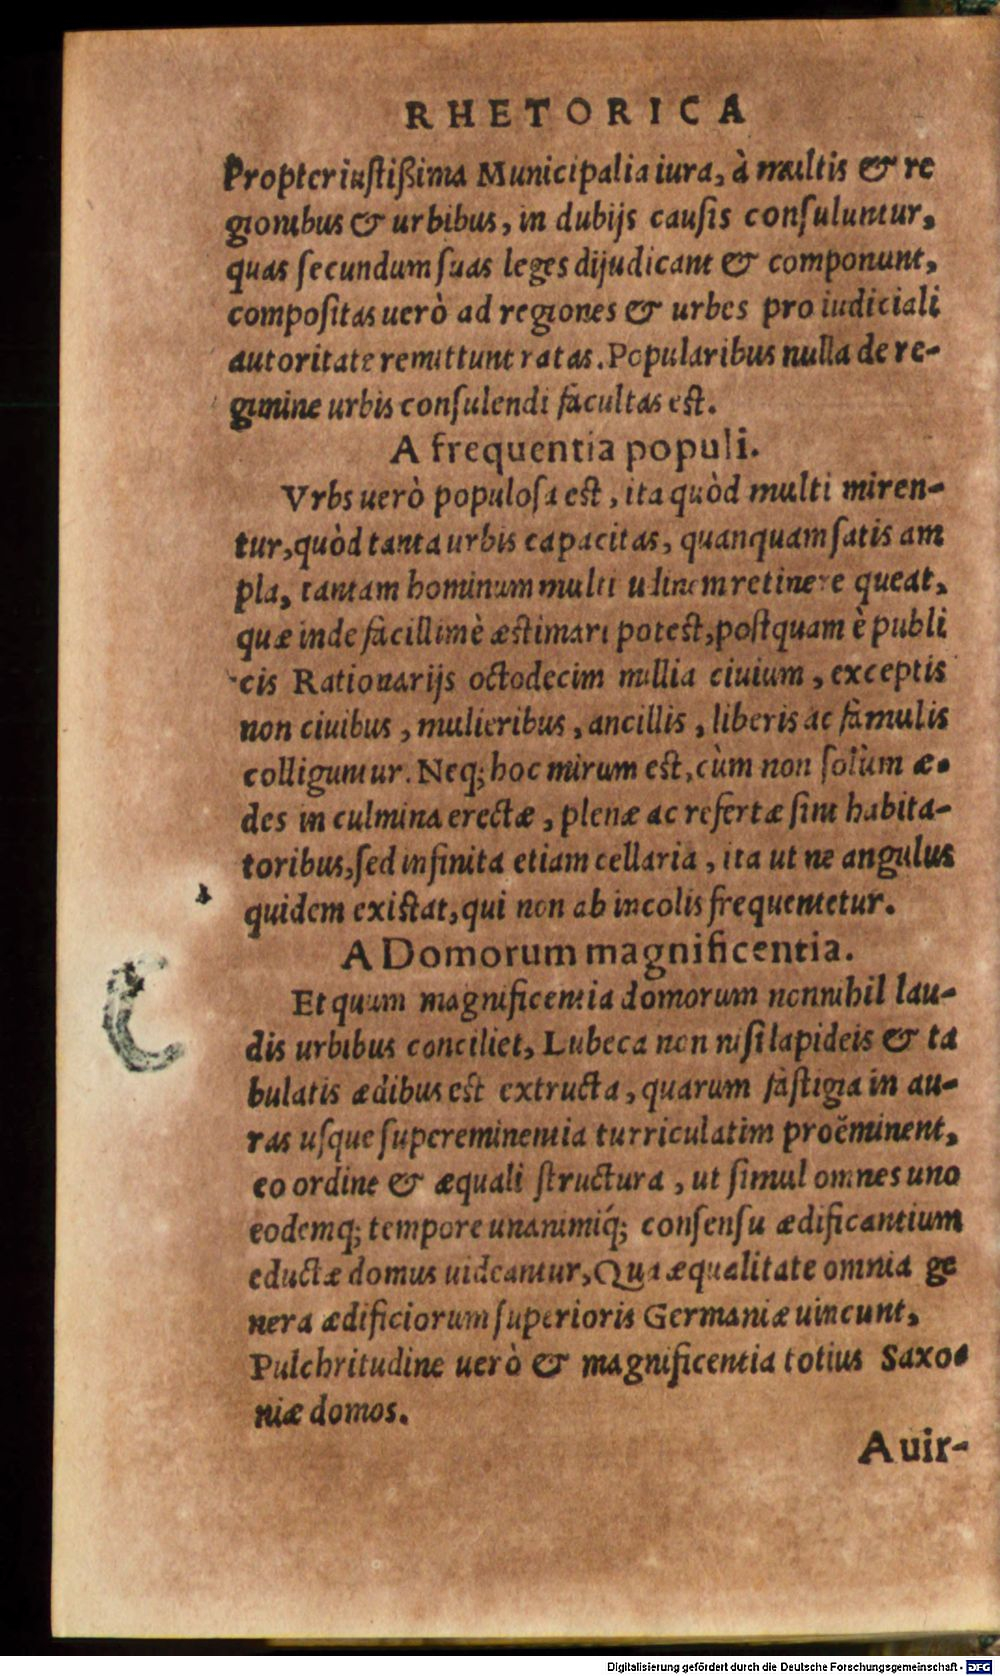 RHETORICA
Propter iustißima Municipalia iura, à multis & re
gionibus & urbibus, in dubijs causis consuluntur,
quas secundum suas leges dijudicant & componunt,
compositas uerò ad regiones & urbes pro iudiciali
autoritate remittunt ratas. Popularibus nulla de re-
gimine urbis consulendi facultas est.
A frequentia populi.
Vrbs uerò populosa est, ita quòd multi miren-
tur, quòd tanta urbis capacitas, quanquam satis am
pla, tantam hominum multitudinem retinere queat,
quæ inde facillimè æstimari potest, postquam è publi
cis Rationarijs octodecim millia ciuium, exceptis
non ciuibus, mulieribus, ancillis, liberis ac famulis
colliguntur. Neq; hoc mirum est, cùm non solùm æ-
des in culmina erectæ, plenæ ac refertæ sint habita-
toribus, sed infinita etiam cellaria, ita ut ne angulus
quidem existat, qui non ab incolis frequentetur.
A Domorum magnificentia.
Et quum magnificentia domorum nonnihil lau-
dis urbibus conciliet, Lubeca non nisi lapideis & ta
bulatis ædibus est extructa, quarum fastigia in au-
ras usque supereminentia turriculatim proëminent,
eo ordine & æquali structura, ut simul omnes uno
eodemq; tempore unanimiq́; consensu ædificantium
eductæ domus uideantur, Qua æqualitate omnia ge
nera ædificiorum superioris Germaniæ uincunt,
Pulchritudine uerò & magnificentia totius Saxo-
niæ domos.
A uir-
Digitalisierung gefördert durch die Deutsche Forschungsgemeinschaft - DFG